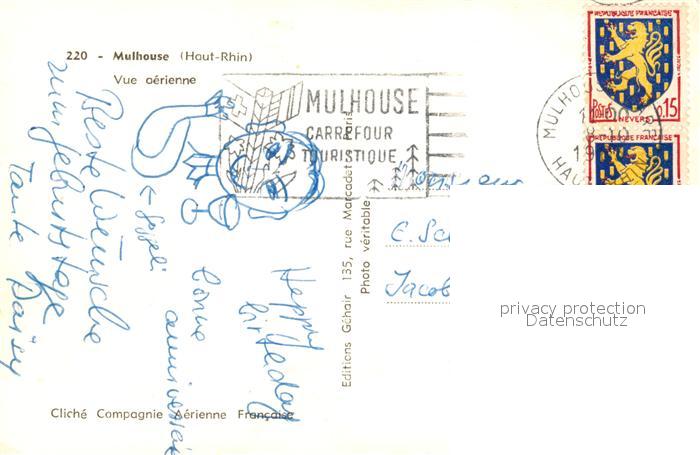 220 - Mulhouse (Haut-Rhin)
Vue aérienne
MULHOUSE
CARREFOUR
TOURISTIQUE
MULHOUSE
REPUBLIQUE FRANÇAISE
POSTES
NEVERS
0,15
REPUBLIQUE FRANÇAISE
Beste Wünsche
zum Geburtstage
Tante Daisy
Happy
birthday
bonne
anniversaire
Editions Géhair 135, rue Marcadet - Paris
Photo véritable
E. Sc
Jacob
privacy protection
Datenschutz
Cliché Compagnie Aérienne Française